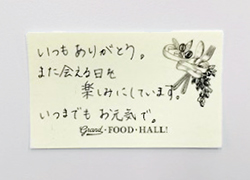 いつもありがとう。
また会える日を
楽しみにしています。
いつまでもお元気で。
Grand・FOOD・HALL!